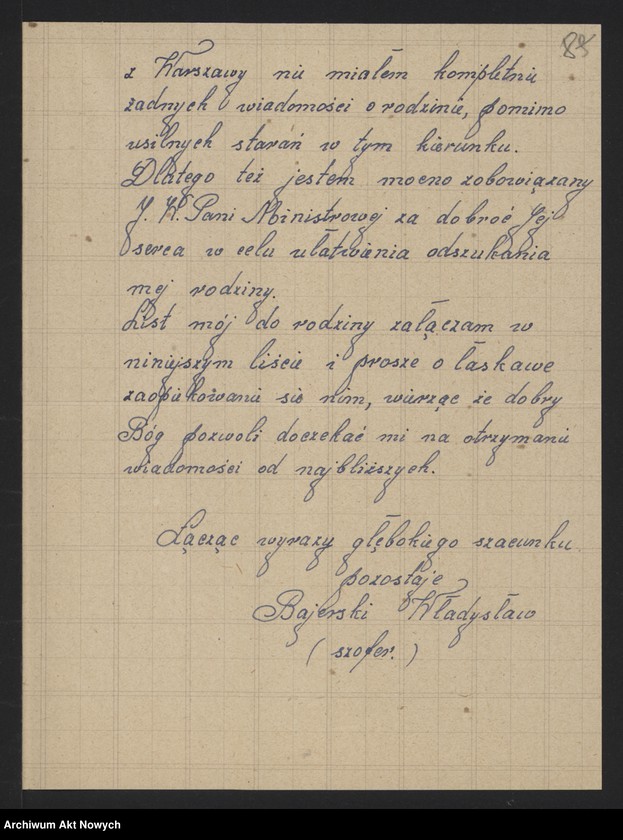 88
z Warszawy nie miałem kompletnie
żadnych wiadomości o rodzinie, pomimo
usilnych starań w tym kierunku.
Dlatego też jestem mocno zobowiązany
J. W. Pani Ministrowej za dobroć Jej
serca w celu ułatwienia odszukania
mej rodziny.
List mój do rodziny załączam w
niniejszym liście i prosze o łaskawe
zaopiekowanie się nim, wierząc że dobry
Bóg pozwoli doczekać mi na otrzymanie
wiadomości od najbliższych.
Łącząc wyrazy głębokiego szacunku
pozostaje
Bajerski Władysław
( szofer. )
Archiwum Akt Nowych